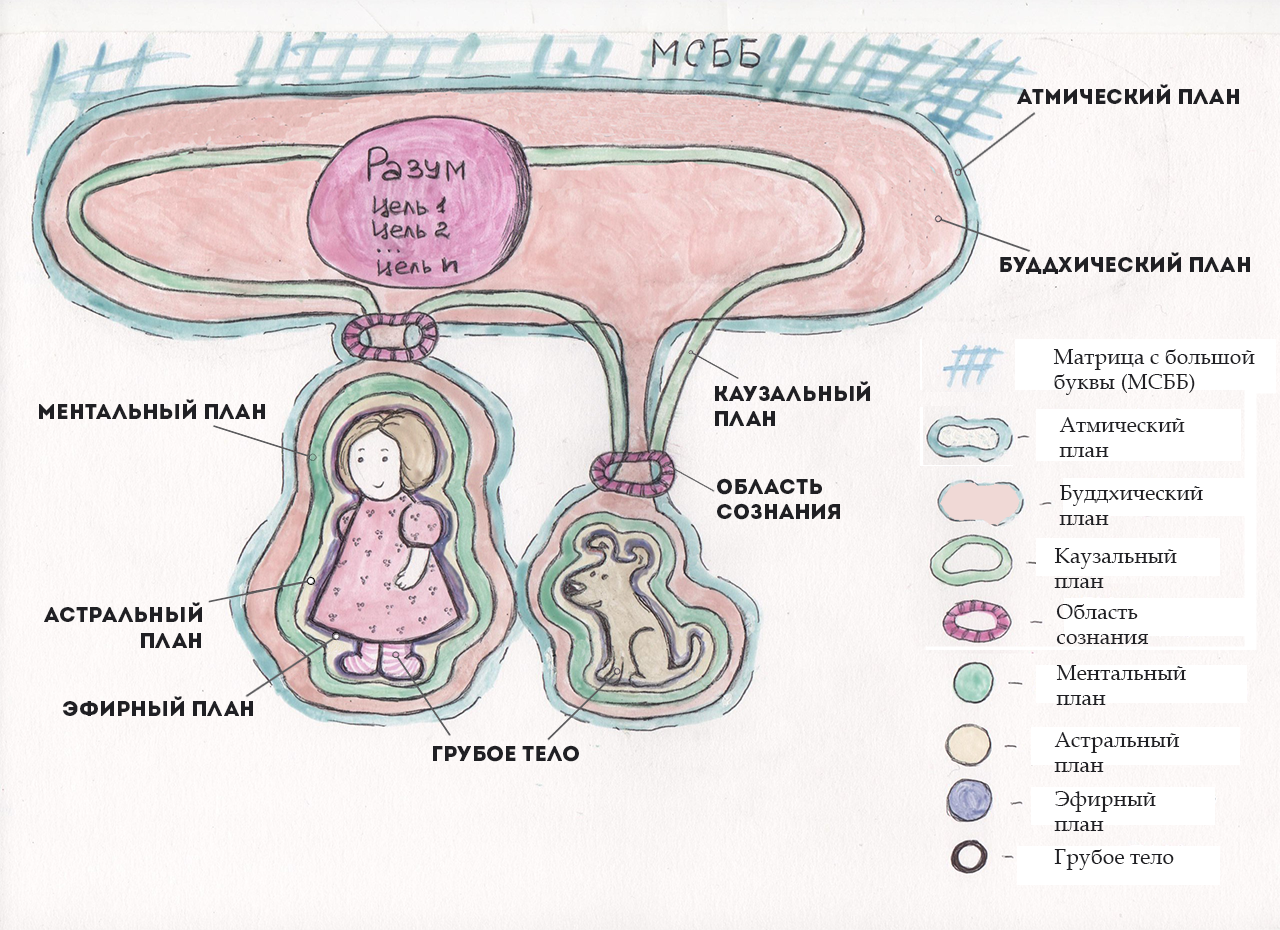 МСББ
АТМИЧЕСКИЙ ПЛАН
Разум
Цель 1
Цель 2
...
Цель n
БУДДХИЧЕСКИЙ ПЛАН
КАУЗАЛЬНЫЙ
ПЛАН
МЕНТАЛЬНЫЙ ПЛАН
ОБЛАСТЬ
СОЗНАНИЯ
АСТРАЛЬНЫЙ
ПЛАН
ЭФИРНЫЙ ПЛАН
ГРУБОЕ ТЕЛО
Матрица с большой
буквы (МСББ)
– Атмический
план
– Буддхический
план
– Каузальный
план
– Область
сознания
– Ментальный
план
– Астральный
план
– Эфирный
план
– Грубое тело